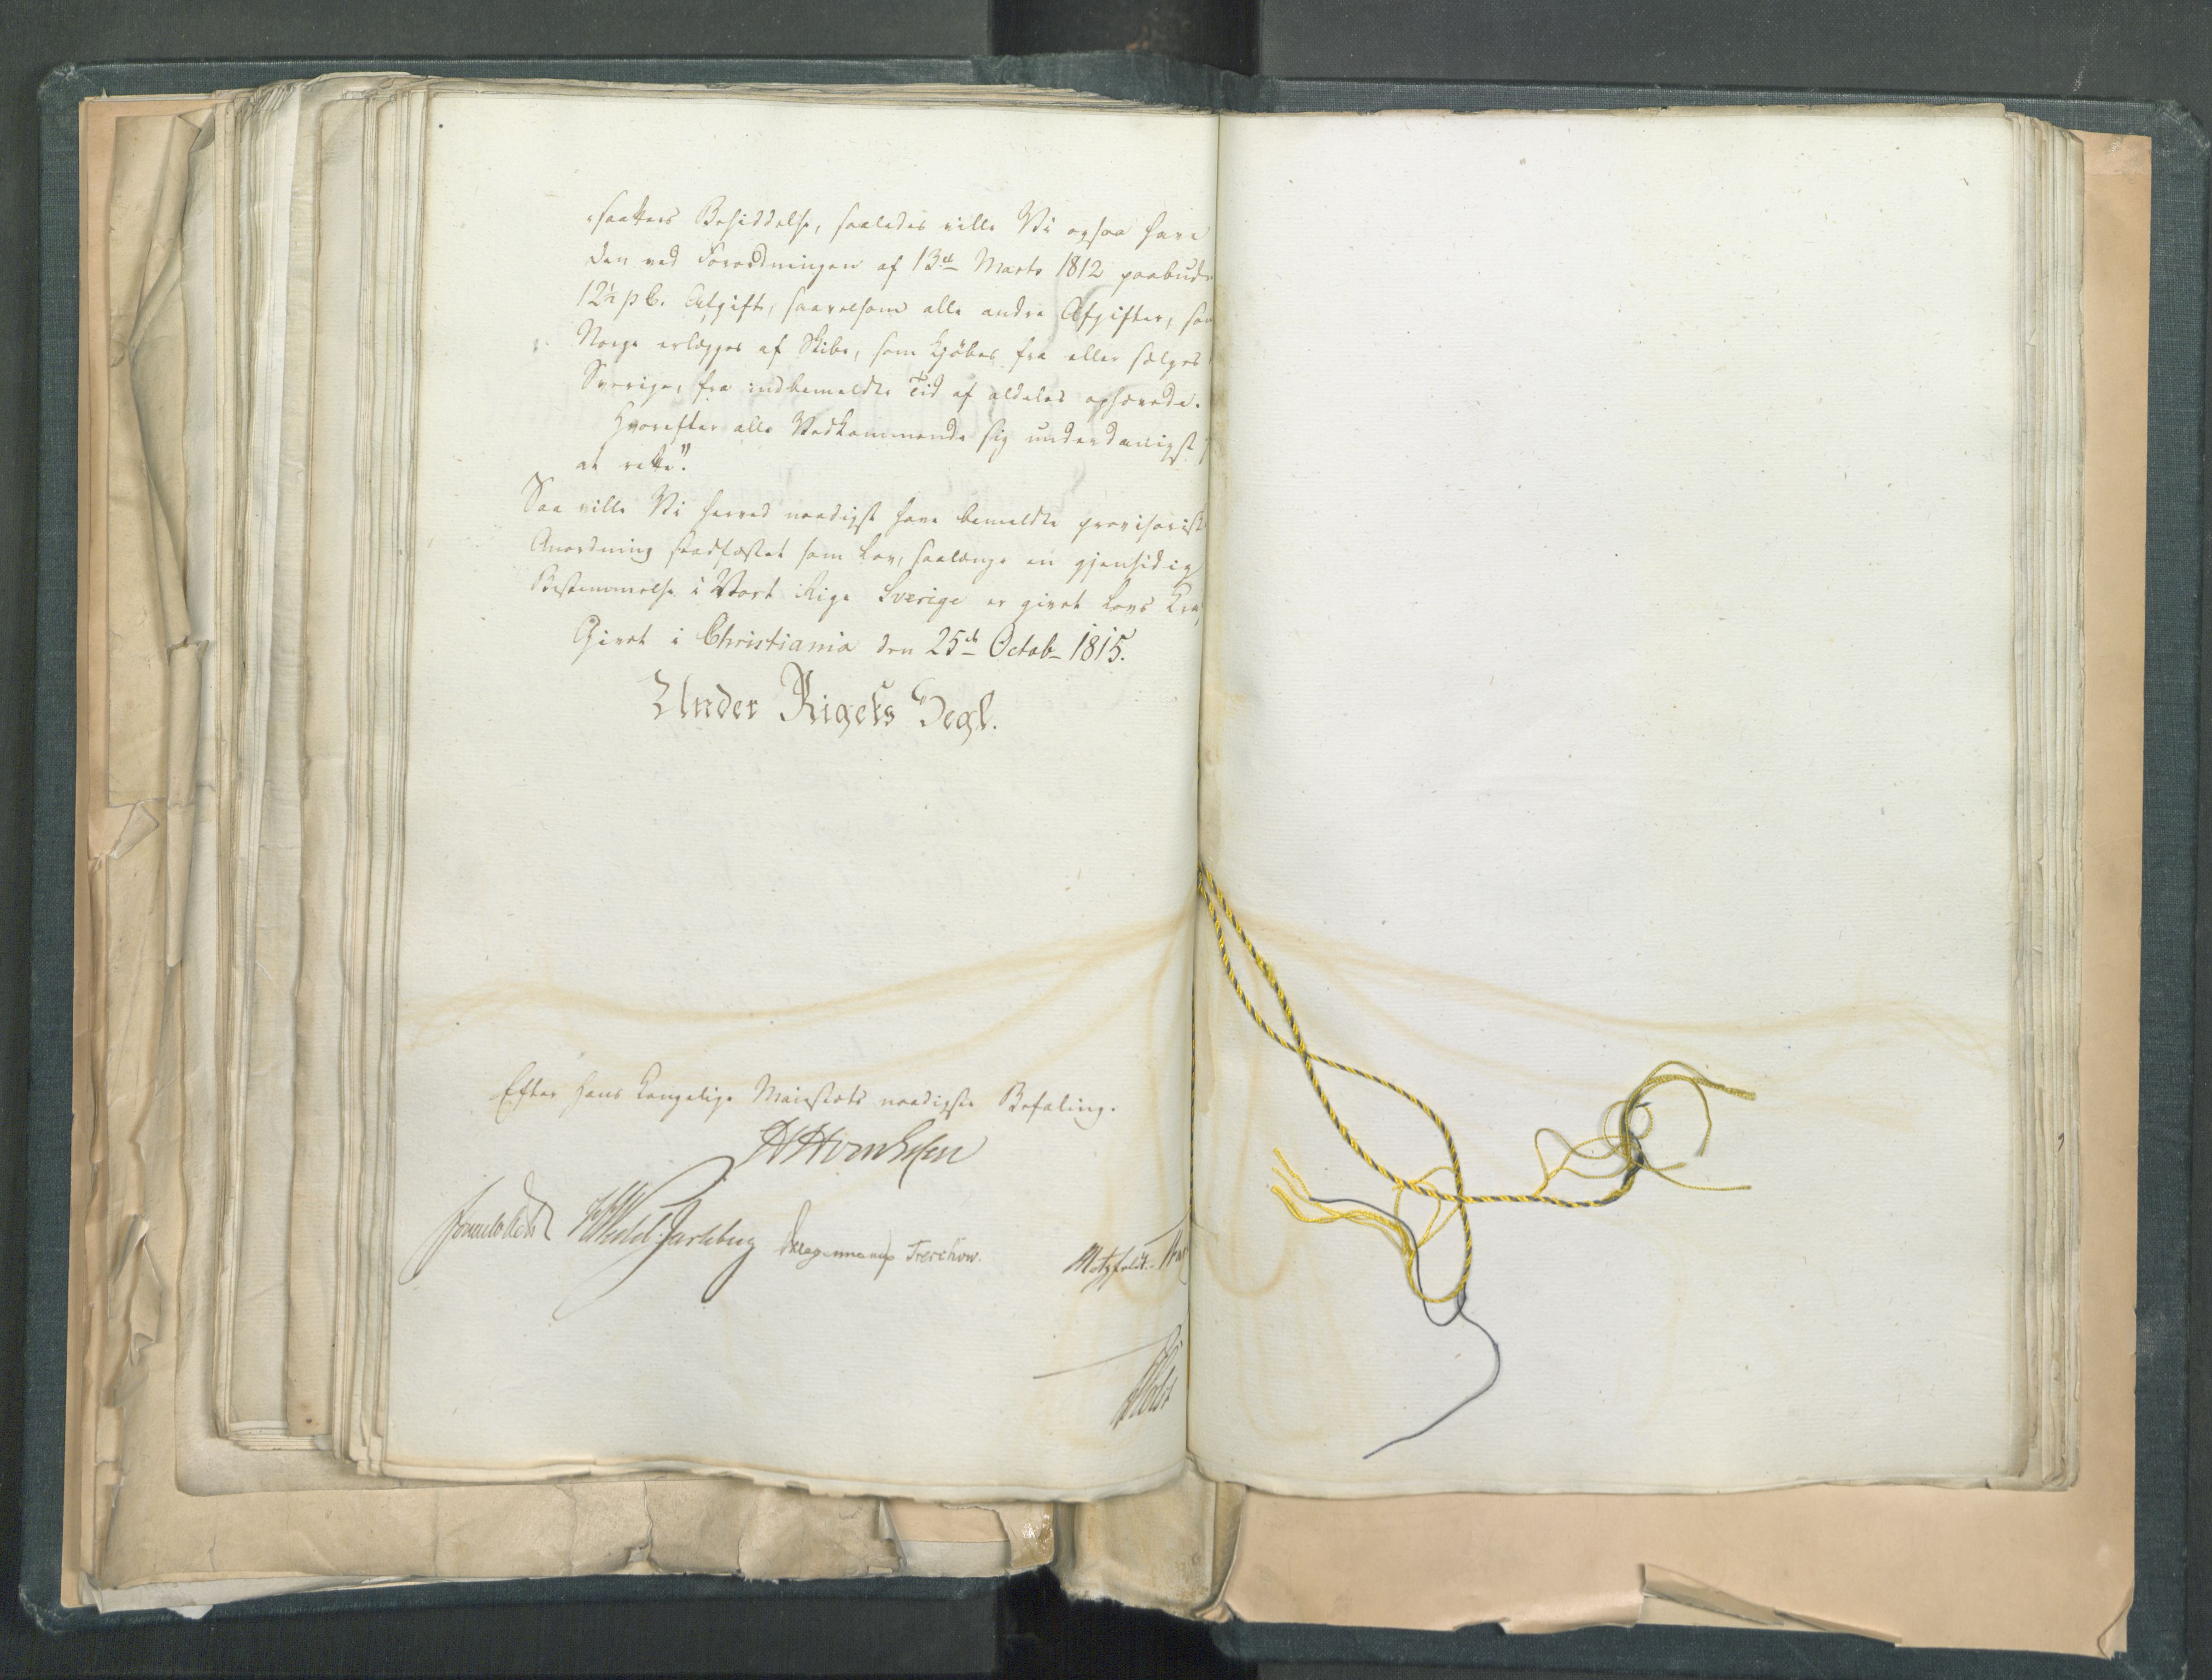 -saatters Besiddelse, saaledes ville Vi ogsaa have
den ved Forordningen af 13de Marts 1812 paabudne
12½ pC. Afgift, saavelsom alle andre Afgifter, som
Norge erlægges af Skibe, som kjøbes fra eller sælges
Sverige, fra indbemeldte Tid af aldeles ophævede.
Hvorefter alle Vedkommende sig underdanigst
at rette."
Saa ville Vi herved naadigst have bemeldte provisorisk
Anordning stadfæstet som Lov, saalænge en gjensidig
Bestemmelse i Vort Rige Sverige er givet Lovs Kra
Givet i Christiania den 25de Octob- 1815.
Under Rigets Segl.
Efter Hans Kongelige Maiestæts naadigste Befaling.
Sommerhielm HWedel Jarlsberg Treschow. Motzfeldt.
Holst